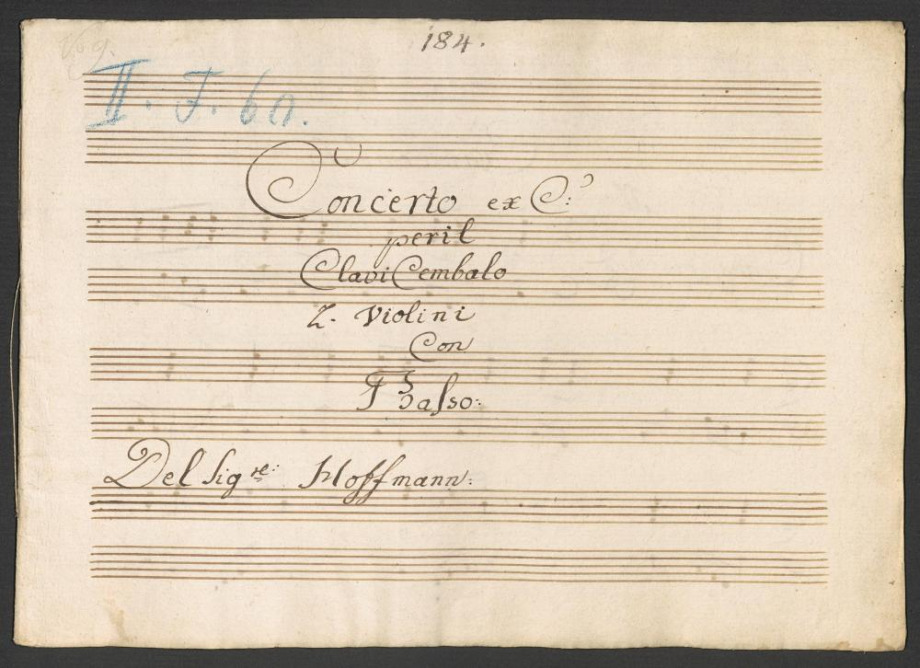 184.
II. J. 60.
Concerto ex C:
per il
ClaviCembalo
2. Violini
Con
Basso:
Del Sig:re Hoffmann: